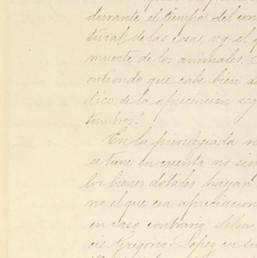 durante el tiempo del con
tural de las cosas, ng el p
muerte de los animales.
entiendo que cabe bien d
dico de la apreciacion seg
tumbre."
En la privilegiada n
se tiene en cuenta no sien
los bienes dotales hayan
no el que esa apreciacion
en caso contrario, debe
ce Gregorio Lopez en su